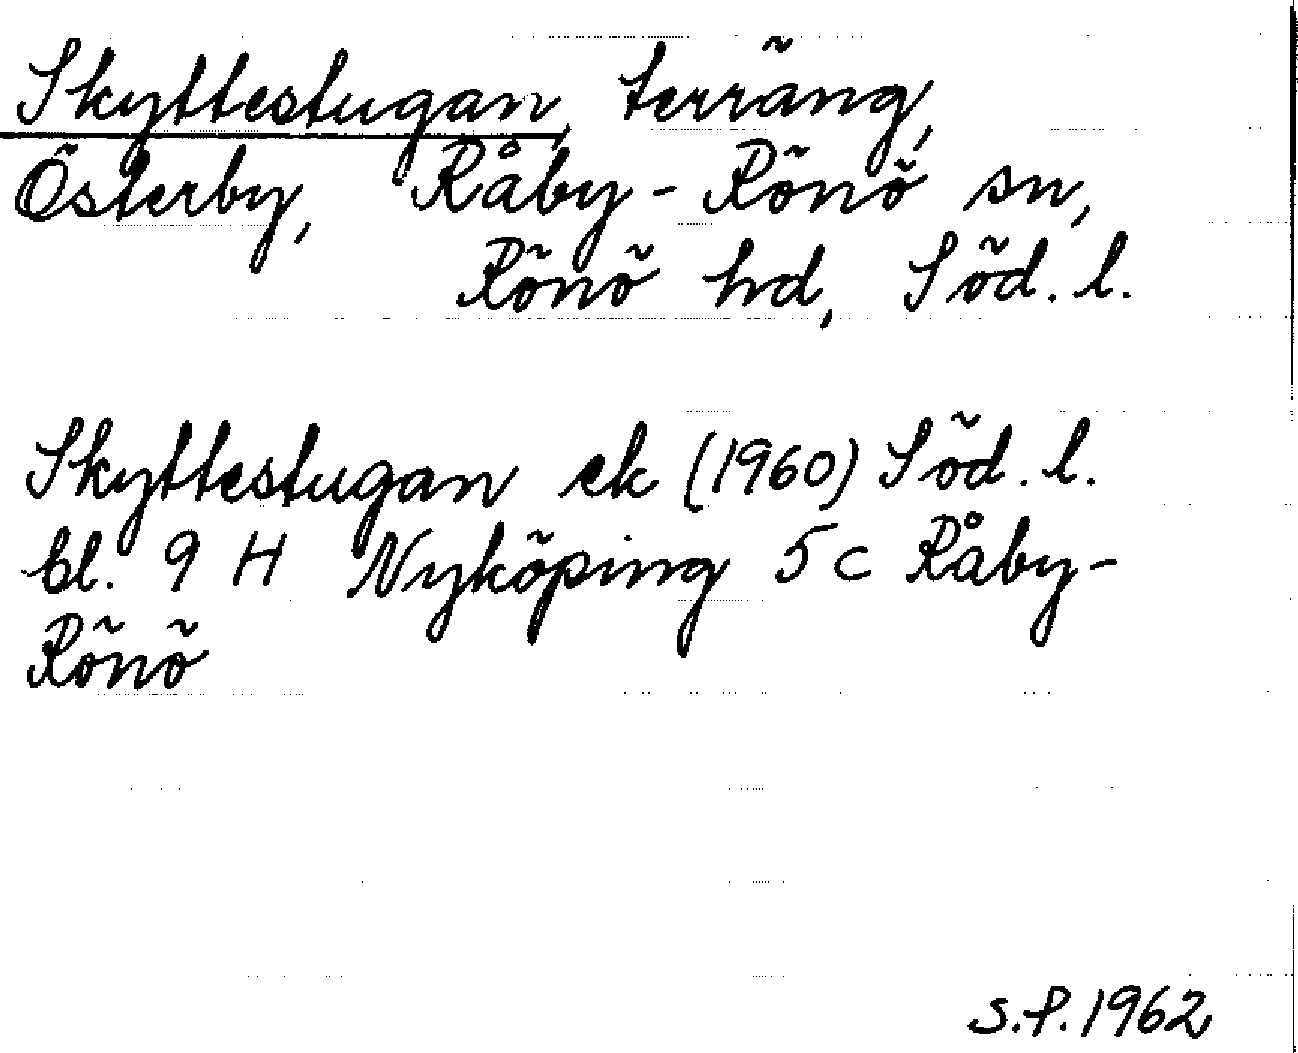 Skyttestugan, terräng,
Österby, Råby-Rönö sn,
Rönö hd, Söd. l.
Skyttestugan ek (1960) Söd. l.
bl. 9 H Nyköping 5 c Råby-
Rönö
S.P. 1962